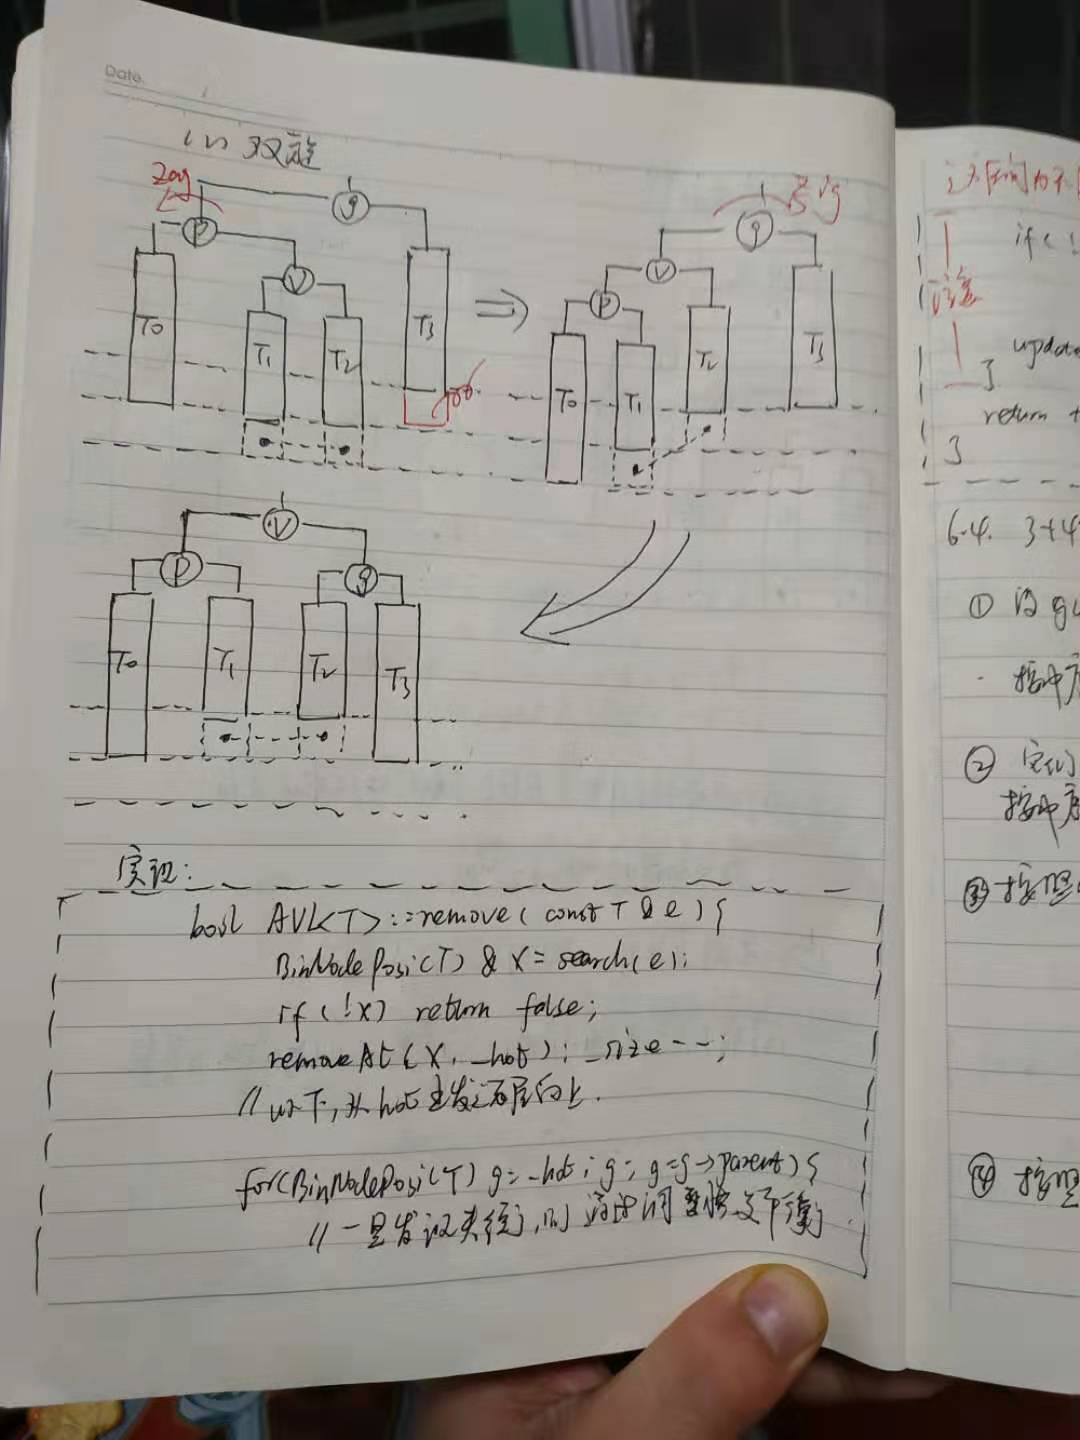 Date.
(2) 双旋
zag
g
zig
g
p
v
v
p
T0
T1
T2
T3
T0
T1
T2
T3
v
p
g
T0
T1
T2
T3
实现:
bool AVL<T>::remove( const T & e ) {
BinNodePosi(T) & x = search(e);
if ( !x ) return false;
removeAt( x, _hot ); _size--;
// 以下,从hot出发逐层向上.
for( BinNodePosi(T) g = _hot; g; g=g->parent) {
// 一旦发现失衡,则 调整恢复平衡
if ( !
update
}
return
}
6.4. 3+4
① 设 g
按中序
②
按中序
③ 按照
④ 按照